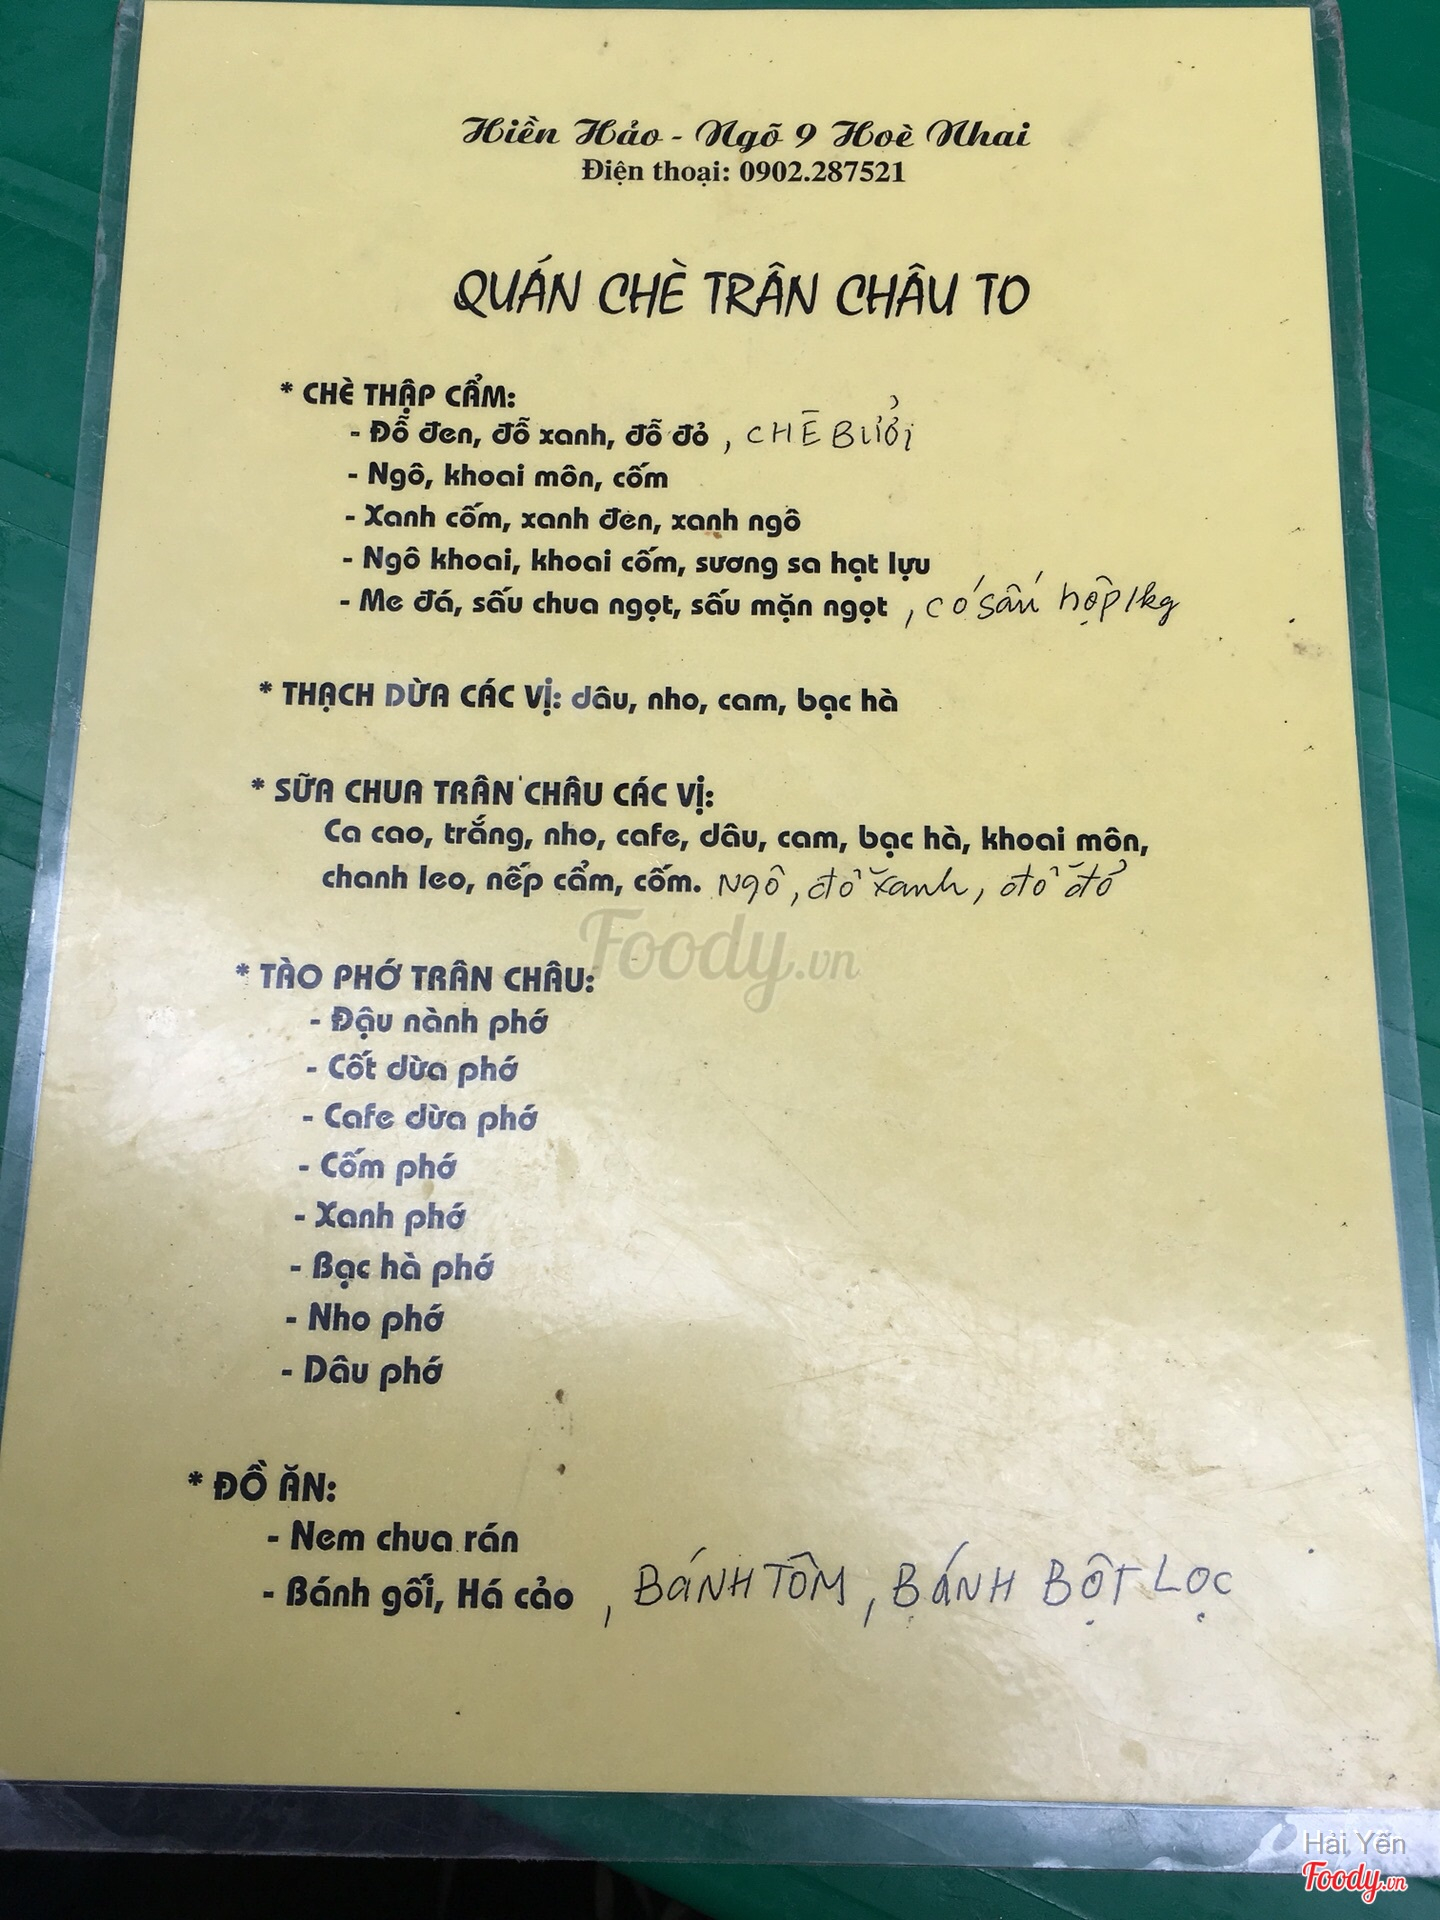 Hiền Hảo - Ngõ 9 Hoè Nhai
Điện thoại: 0902.287521
QUÁN CHÈ TRÂN CHÂU TO
* CHÈ THẬP CẨM:
- Đỗ đen, đỗ xanh, đỗ đỏ , CHÈ BƯỞI
- Ngô, khoai môn, cốm
- Xanh cốm, xanh đen, xanh ngô
- Ngô khoai, khoai cốm, sương sa hạt lựu
- Me đá, sấu chua ngọt, sấu mặn ngọt , có sấu hộp 1kg
* THẠCH DỪA CÁC VỊ: dâu, nho, cam, bạc hà
* SỮA CHUA TRÂN CHÂU CÁC VỊ:
Ca cao, trắng, nho, cafe, dâu, cam, bạc hà, khoai môn,
chanh leo, nếp cẩm, cốm. Ngô, đỗ xanh, đỗ đỏ
Foody.vn
* TÀO PHỚ TRÂN CHÂU:
- Đậu nành phớ
- Cốt dừa phớ
- Cafe dừa phớ
- Cốm phớ
- Xanh phớ
- Bạc hà phớ
- Nho phớ
- Dâu phớ
* ĐỒ ĂN:
- Nem chua rán
- Bánh gối, Há cảo , BÁNH TÔM, BÁNH BỘT LỌC
Hải Yến
Foody.vn